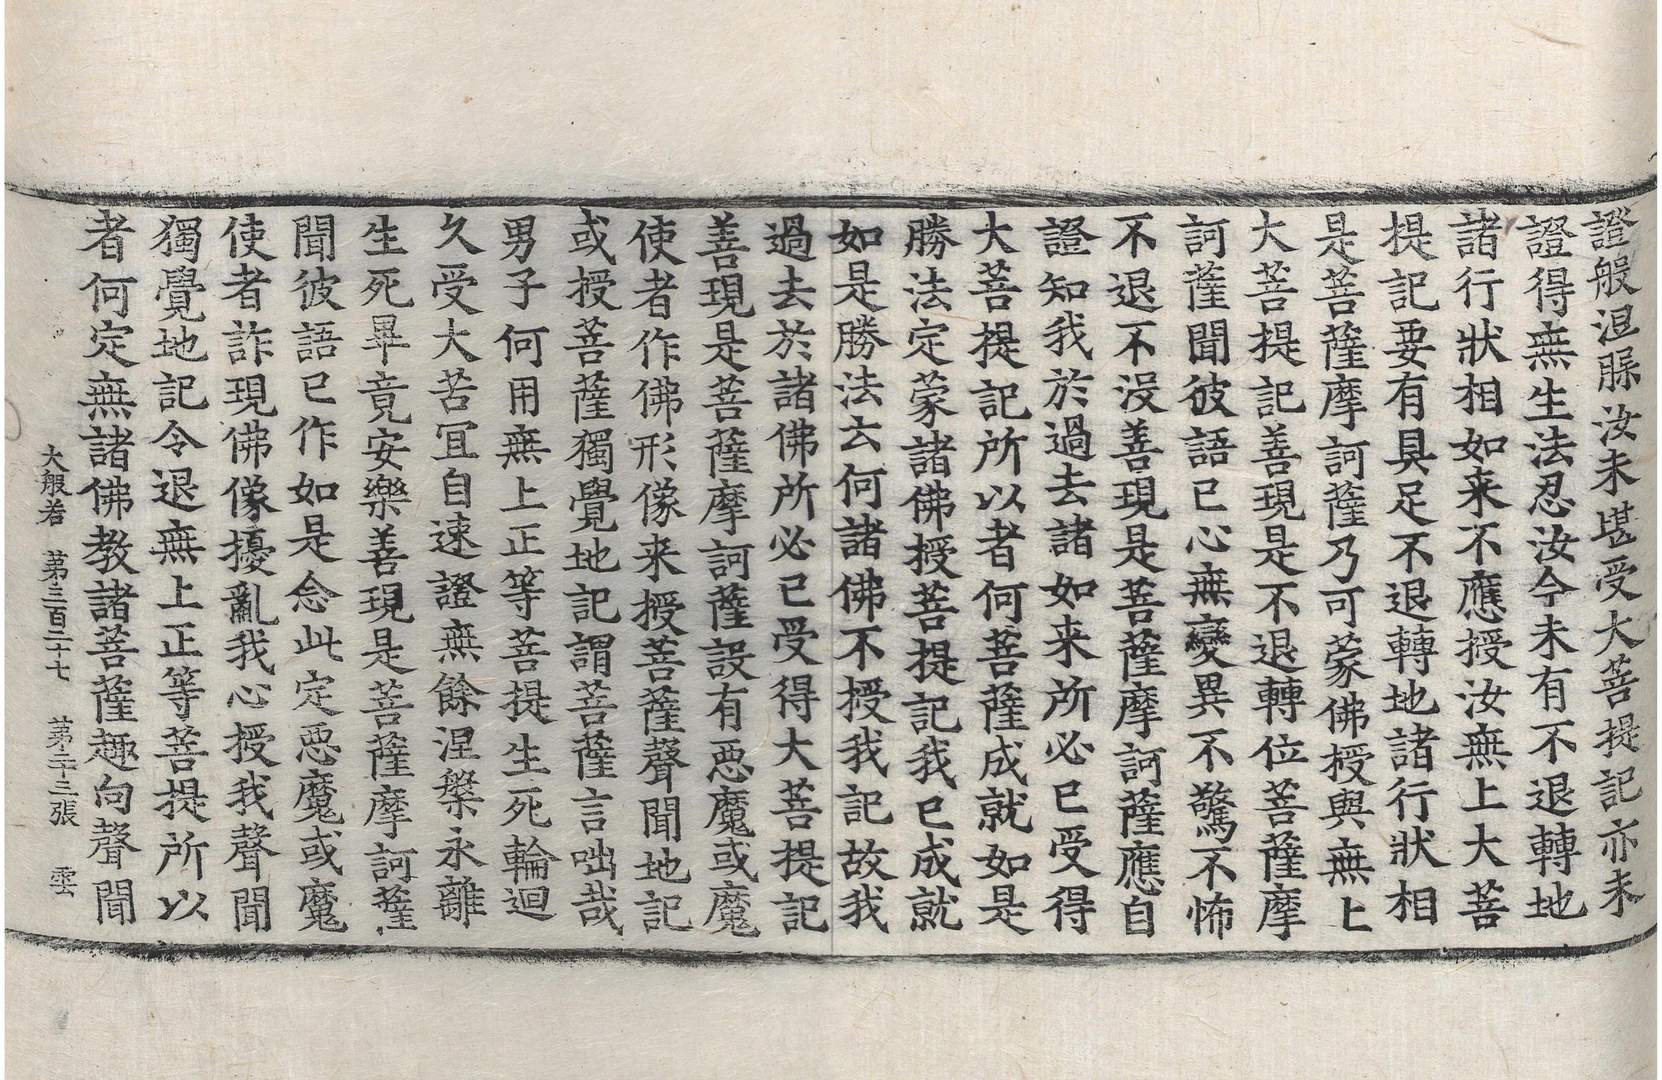 證般涅槃汝未堪受大菩提記亦未
證得無生法忍汝今未有不退轉地
諸行狀相如来不應授汝無上大菩
提記要有具足不退轉地諸行狀相
是菩薩摩訶薩乃可蒙佛授與無上
大菩提記善現是不退轉位菩薩摩
訶薩聞彼語已心無變異不驚不怖
不退不没善現是菩薩摩訶薩應自
證知我於過去諸如来所必已受得
大菩提記所以者何菩薩成就如是
勝法定蒙諸佛授菩提記我已成就
如是勝法云何諸佛不授我記故我
過去於諸佛所必已受得大菩提記
善現是菩薩摩訶薩設有惡魔或魔
使者作佛形像来授菩薩聲聞地記
或授菩薩獨覺地記謂菩薩言咄哉
男子何用無上正等菩提生死輪迴
久受大苦冝自速證無餘涅槃永離
生死畢竟安樂善現是菩薩摩訶薩
聞彼語已作如是念此定惡魔或魔
使者詐現佛像擾亂我心授我聲聞
獨覺地記令退無上正等菩提所以
者何定無諸佛教諸菩薩趣向聲聞
大般若 第三百二十七 第二十三張 雲